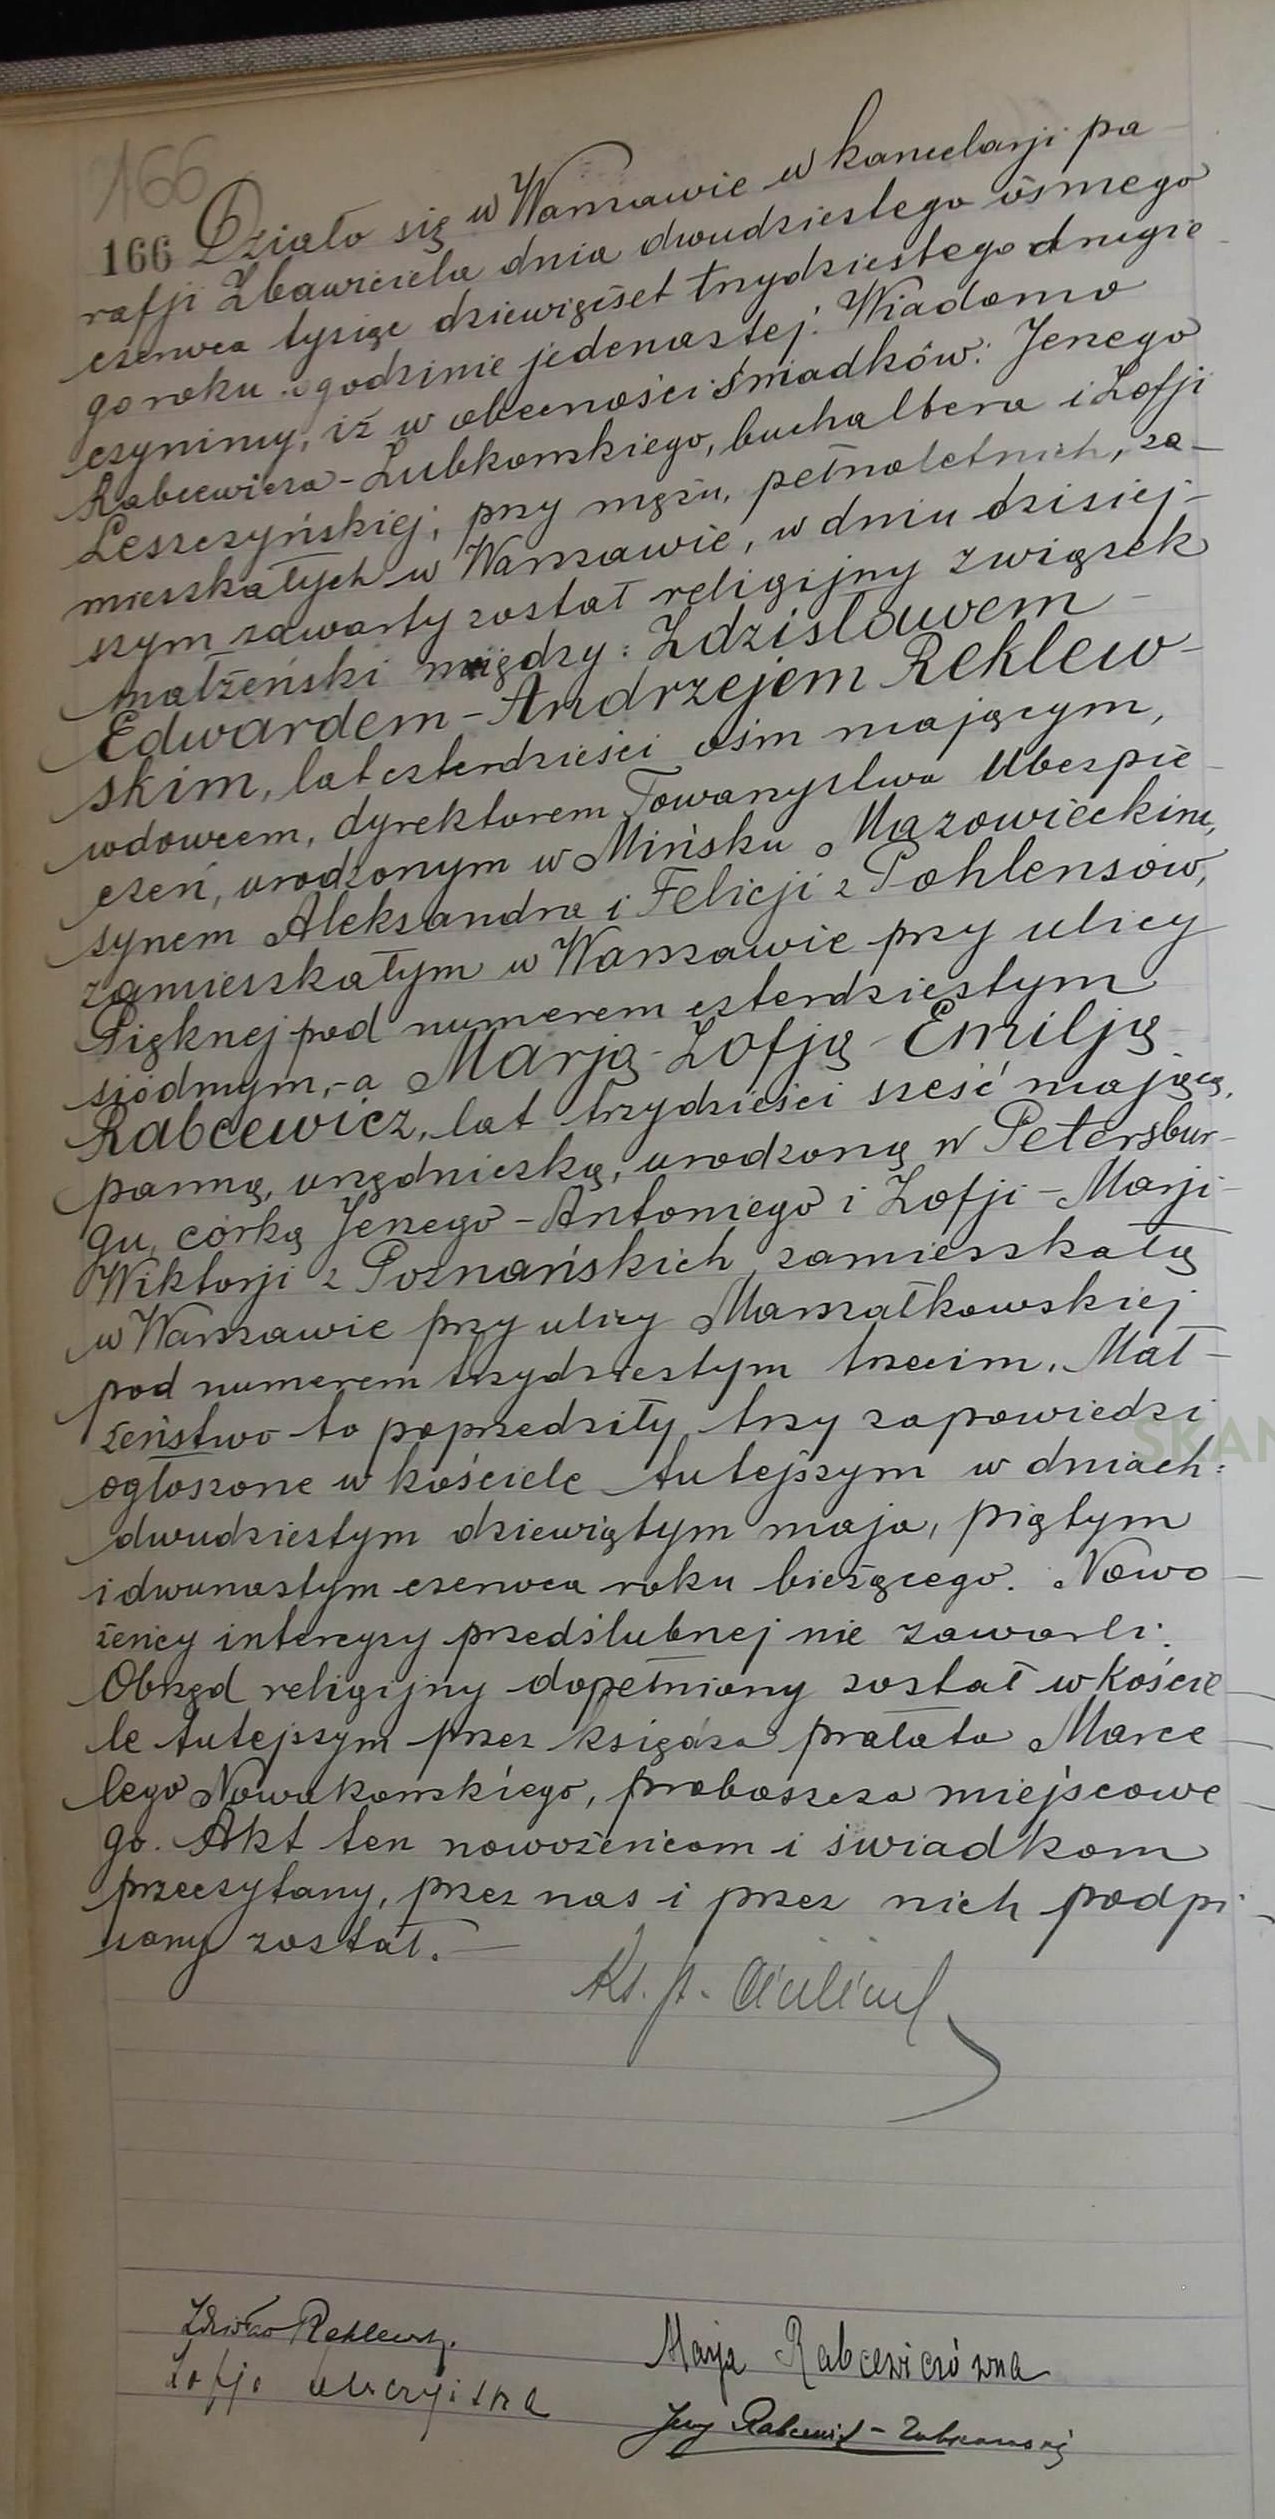 166
166 Działo się w Warszawie w kancelarji pa-
rafji Zbawiciela dnia dwudziestego ósmego
czerwca tysiąc dziewięćset trzydziestego drugie-
go roku o godzinie jedenastej. Wiadomo
czynimy, iż w obecności świadków: Jerzego
Rabcewicza-Zubkowskiego, buchaltera i Zofji
Leszczyńskiej, przy mężu, pełnoletnich, za-
mieszkałych w Warszawie, w dniu dzisiej-
szym zawarty został religijny związek
małżeński między: Zdzisławem-
Edwardem-Andrzejem Reklew-
skim, lat czterdzieści ośm mającym,
wdowcem, dyrektorem Towarzystwa Ubezpie-
czeń, urodzonym w Mińsku Mazowieckim,
synem Aleksandra i Felicji z Pohlensów,
zamieszkałym w Warszawie przy ulicy
Pięknej pod numerem czterdziestym
siódmym,-a Marją-Zofją-Emilją
Rabcewicz, lat trzydzieści sześć mającą,
panną, urzędniczką, urodzoną w Petersbur-
gu, córką Jerzego-Antoniego i Zofji-Marji-
Wiktorji z Poznańskich, zamieszkałą
w Warszawie przy ulicy Marszałkowskiej
pod numerem trzydziestym trzecim. Mał-
żeństwo to poprzedziły trzy zapowiedzi
ogłoszone w kościele tutejszym w dniach:
dwudziestym dziewiątym maja, piątym
i dwunastym czerwca roku bieżącego. Nowo-
żeńcy intercyzy przedślubnej nie zawarli.
Obrzęd religijny dopełniony został w koście-
le tutejszym przez księdza prałata Marce-
lego Nowakowskiego, proboszcza miejscowe-
go. Akt ten nowożeńcom i świadkom
przeczytany, przez nas i przez nich podpi-
sany został.-
Ks.
Zdzisław Reklewski
Marja Rabcewiczówna
Zofja Leszczyńska
Jerzy Rabcewicz-Zubkowski
SKAN